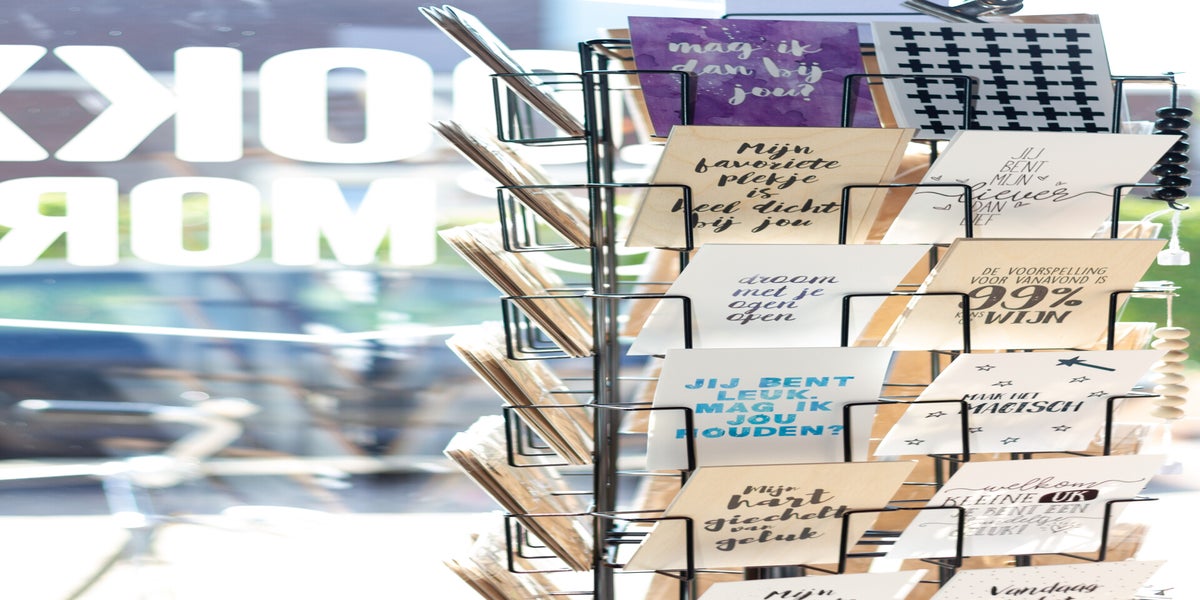 OKK
MOR
mag ik
dan bij
jou?
Mijn
favoriete
plekje
is
heel dicht
bij jou
JIJ
BENT
MIJN
liever
DAN
LIEF
droom
met je
ogen
open
DE VOORSPELLING
VOOR VANAVOND IS
99%
KANS
OP WIJN
JIJ BENT
LEUK.
MAG IK
JOU
HOUDEN?
MAAK HET
MAGISCH
Mijn
hart
giechelt
van
geluk
welkom
KLEINE UK
JE BENT EEN
GELUKJE
Mijn
Vandaag